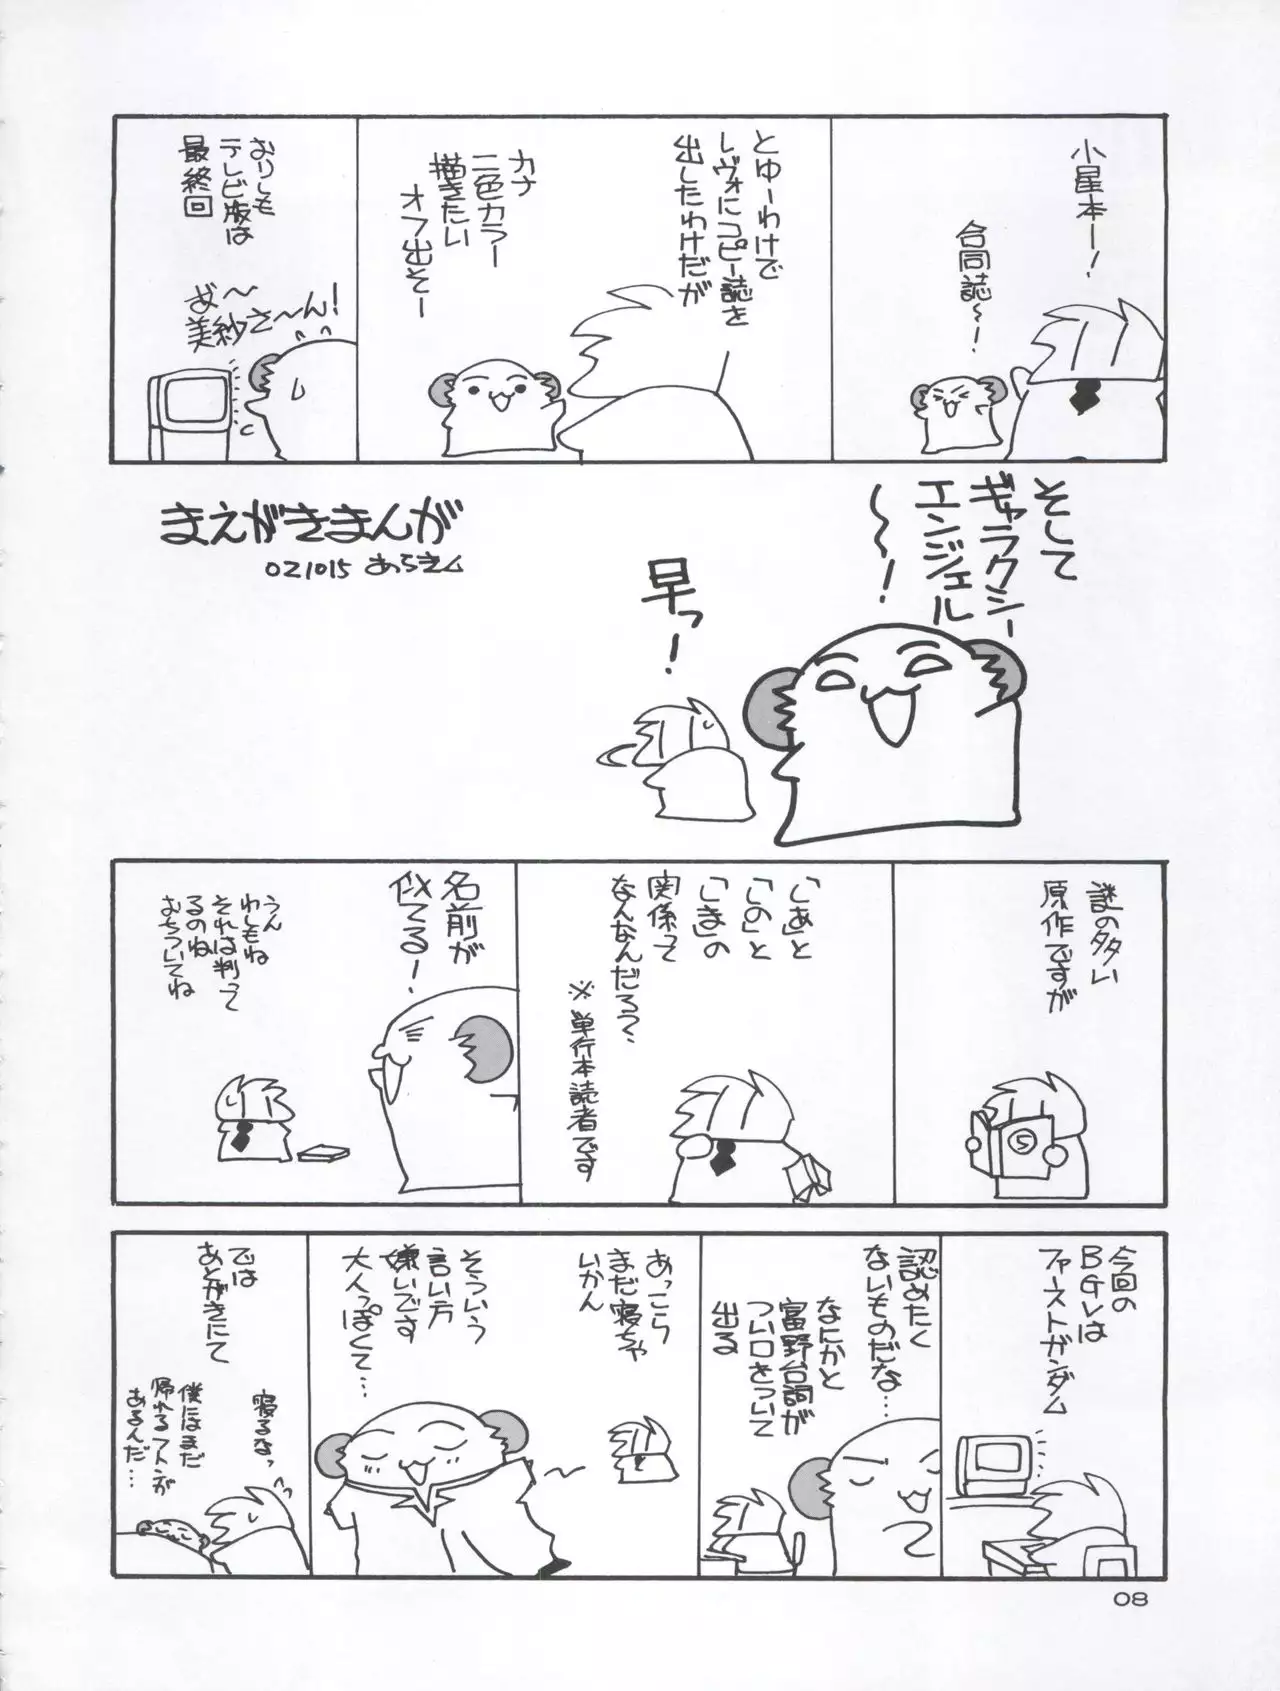 小星本ー！
合同誌〜！
とゆーわけで
レヴォにコピー誌を
出したわけだが
カナ
二色カラー
描きたい
オフ出そー
おりしも
テレビ版は
最終回
あ〜
美紗さ〜ん！
そして
ギャラクシー
エンジェル
〜〜！
早っ！
まえがきまんが
021015 あらきム
謎の多い
原作ですが
「あ」と
「の」と
「ま」の
関係って
なんなんだろう？
※単行本読者です
名前が
似てる！
うん
わしもね
それは判って
るのね
おちついてね
今回の
BGVは
ファーストガンダム
認めたく
ないものだな…
なにかと
富野台詞が
つい口をついて
出る
あっこら
まだ寝ちゃ
いかん
そういう
言い方
嫌いです
大人っぽくて…
では
あとがきにて
寝るなっ
僕にはまだ
帰れるフトンが
あるんだ…
08